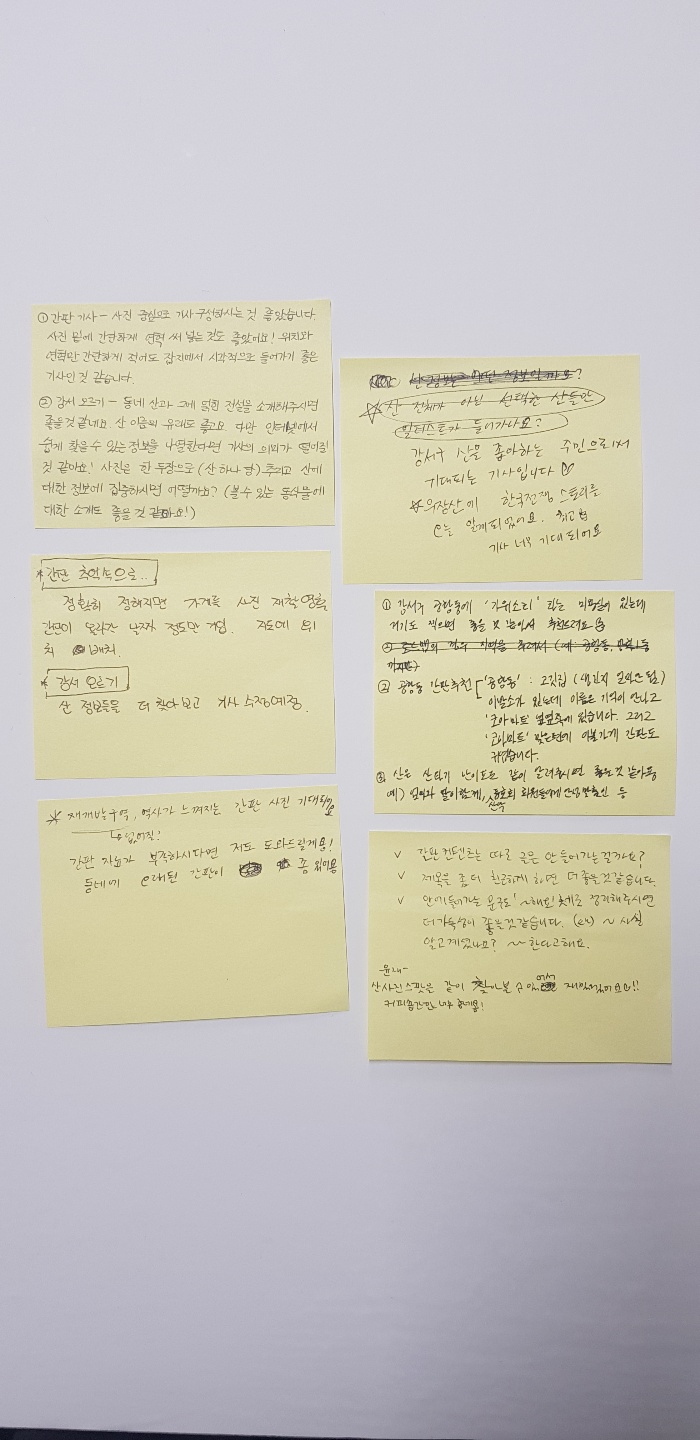 ① 간판 기사 - 사진 중심으로 기사 구성하시는 것 좋았습니다
사진 밑에 간단하게 연혁 써 넣는 것도 좋았어요! 위치와
연혁만 간단하게 적어도 잡지에서 시각적으로 들어가기 좋은
기사인 것 같습니다.
② 강서 오르기 - 동네 산과 그에 얽힌 전설을 소개해주시면
좋을 것 같네요 산 이름의 유래도 좋고요 다만 인터넷에서
쉽게 찾을 수 있는 정보를 나열한다면 기사의 의미가 떨어질
것 같아요! 사진은 한 두장으로 (산 하나 당) 추리고 산에
대한 정보에 집중하시면 어떨까요? (볼 수 있는 동식물에
대한 소개도 좋을 것 같아요!)
* 간판 추억속으로..
정확히 정해지면 가게를 사진 재촬영함
간판이 올라간 날짜 정도만 기입. 지도에 위
치 배치.
* 강서 오르기
산 정보들을 더 찾아보고 기사 수정예정.
* 재개발구역, 역사가 느껴지는 간판 사진 기대돼요
없어질!
간판 자료가 부족하시다면 저도 도와드릴게용!
동네에 오래된 간판이 좀 있어용
☆ 산 전체가 아닌 선택한 산들만
일러스트가 들어가나요?
강서구 산을 좋아하는 주민으로서
기대되는 기사입니다 ♡
* 우장산에 한국전쟁 스토리를
오늘 알게되었어요. 최고
기사 너무 기대되어요
① 강서구 공항동에 '가위소리' 라는 미용실이 있는데
거기도 찍으면 좋을 것 같아서 추천드려요
② 공항동 간판추천 '공항동' : 고깃집 (생긴지 얼마안됨)
이발소가 있는데 이름은 기억이 안나고
있습니다. 그리고
맞은편에 이불가게 간판도
귀엽습니다.
③ 산은 산타기 난이도도 같이 알려주시면 좋을것 같아용
예) 엄마와 딸이 함께, 산악 동호회 회원들에게 안성맞춤인 등
∨ 간판 컨텐츠는 따로 글은 안 들어가는 걸까요?
∨ 제목을 좀 더 친근하게 하면 더 좋을것같습니다.
∨ 안에 들어가는 문구도 '~해요' 체로 정리해주시면
더 가독성이 좋을것같습니다. (ex) ~ 사실
알고계셨나요? ~ 한다고해요.
산사진스팟을 같이 찾아볼 수 있어서 재밌었어요!!